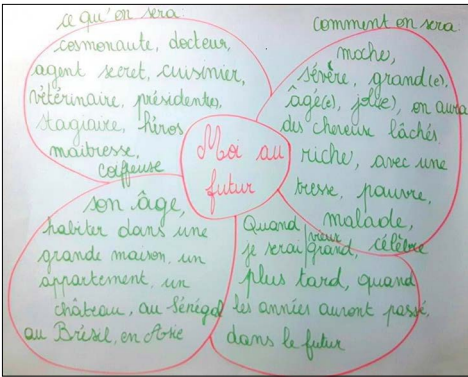 ce qu'on sera :
cosmonaute, docteur,
agent secret, cuisinier,
vétérinaire, présidente,
stagiaire, héros
maitresse,
coiffeuse
comment on sera :
moche,
sévère, grand(e),
âgé(e), joli(e), on aura
des cheveux lâchés
riche, avec une
tresse, pauvre,
malade,
célèbre
Moi au
futur
son âge,
habiter dans une
grande maison, un
appartement, un
château, au Sénégal
au Brésil, en Asie
Quand
je serai vieux
grand,
plus tard, quand
les années auront passé,
dans le futur